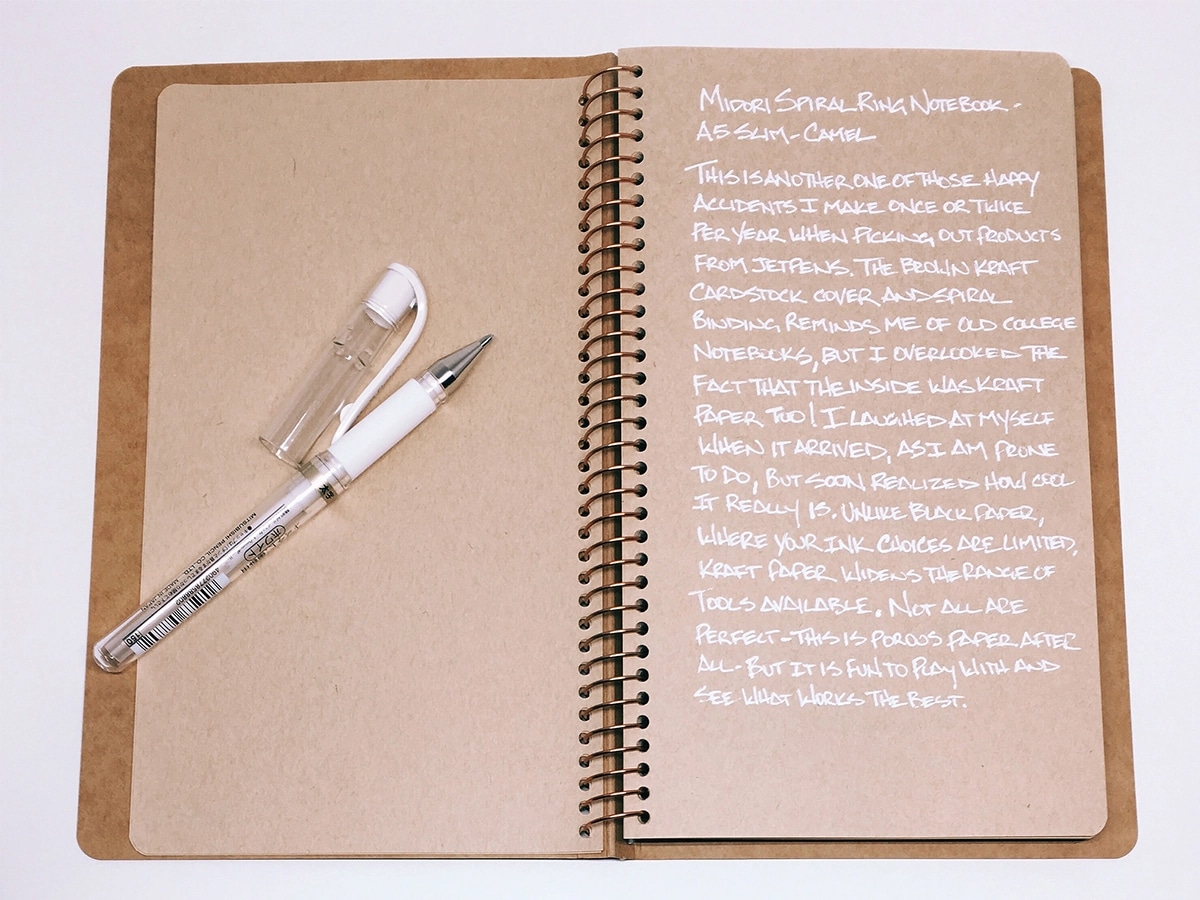 MIDORI SPIRAL RING NOTEBOOK -
A5 SLIM - CAMEL
THIS IS ANOTHER ONE OF THOSE HAPPY
ACCIDENTS I MAKE ONCE OR TWICE
PER YEAR WHEN PICKING OUT PRODUCTS
FROM JETPENS. THE BROWN KRAFT
CARDSTOCK COVER AND SPIRAL
BINDING REMINDS ME OF OLD COLLEGE
NOTEBOOKS, BUT I OVERLOOKED THE
FACT THAT THE INSIDE WAS KRAFT
PAPER TOO! I LAUGHED AT MYSELF
WHEN IT ARRIVED, AS I AM PRONE
TO DO, BUT SOON REALIZED HOW COOL
IT REALLY IS. UNLIKE BLACK PAPER,
WHERE YOUR INK CHOICES ARE LIMITED,
KRAFT PAPER WIDENS THE RANGE OF
TOOLS AVAILABLE. NOT ALL ARE
PERFECT - THIS IS POROUS PAPER AFTER
ALL - BUT IT IS FUN TO PLAY WITH AND
SEE WHAT WORKS THE BEST.
ホワイト
MITSUBISHI PENCIL CO., LTD.
MADE IN JAPAN